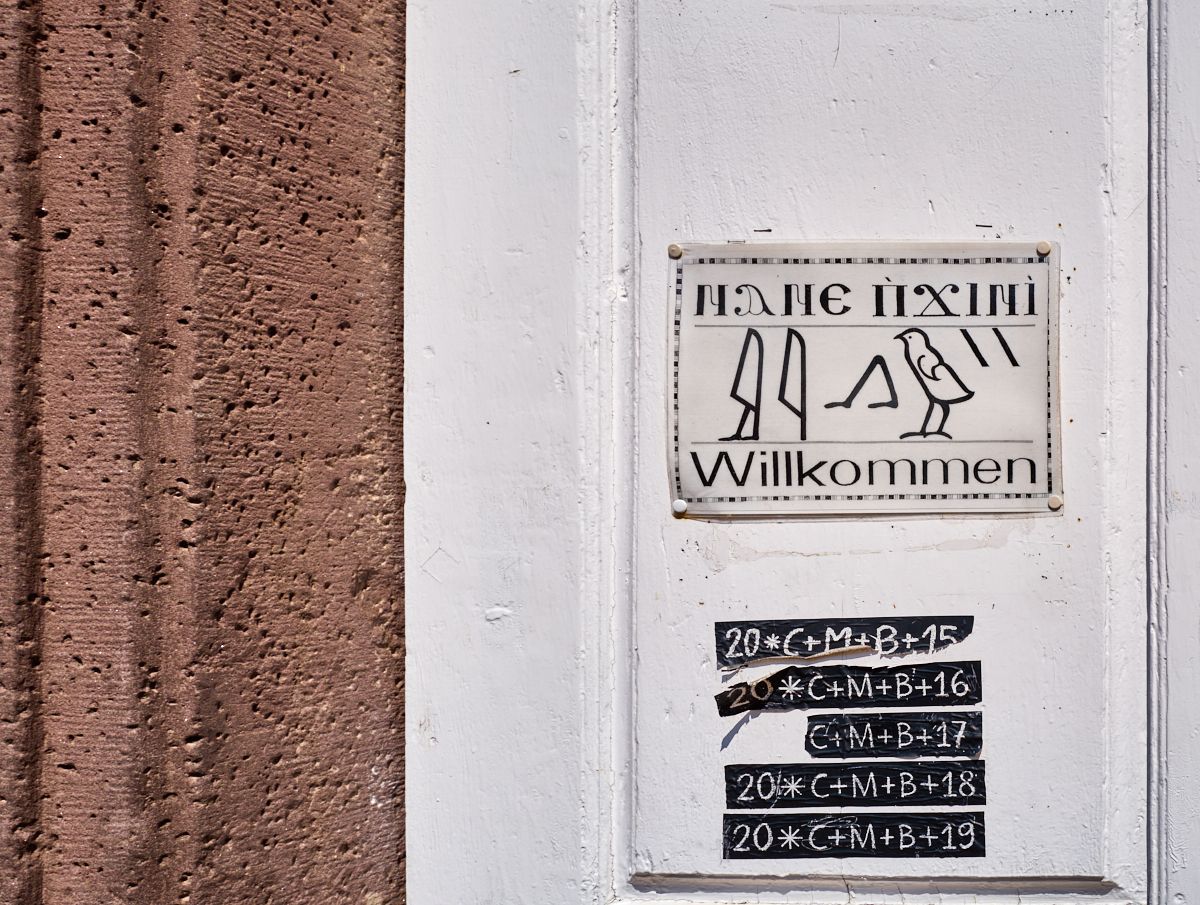 ⲚⲀⲚⲈ Ⲡ̀ϪⲒⲚⲒ̀
𓇍𓇋𓂻𓅱𓏭
Willkommen
20*C+M+B+15
20*C+M+B+16
C+M+B+17
20*C+M+B+18
20*C+M+B+19